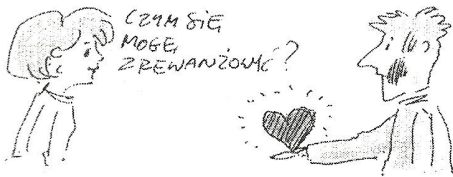 CZYM SIĘ
MOGĘ
ZREWANŻOWAĆ?